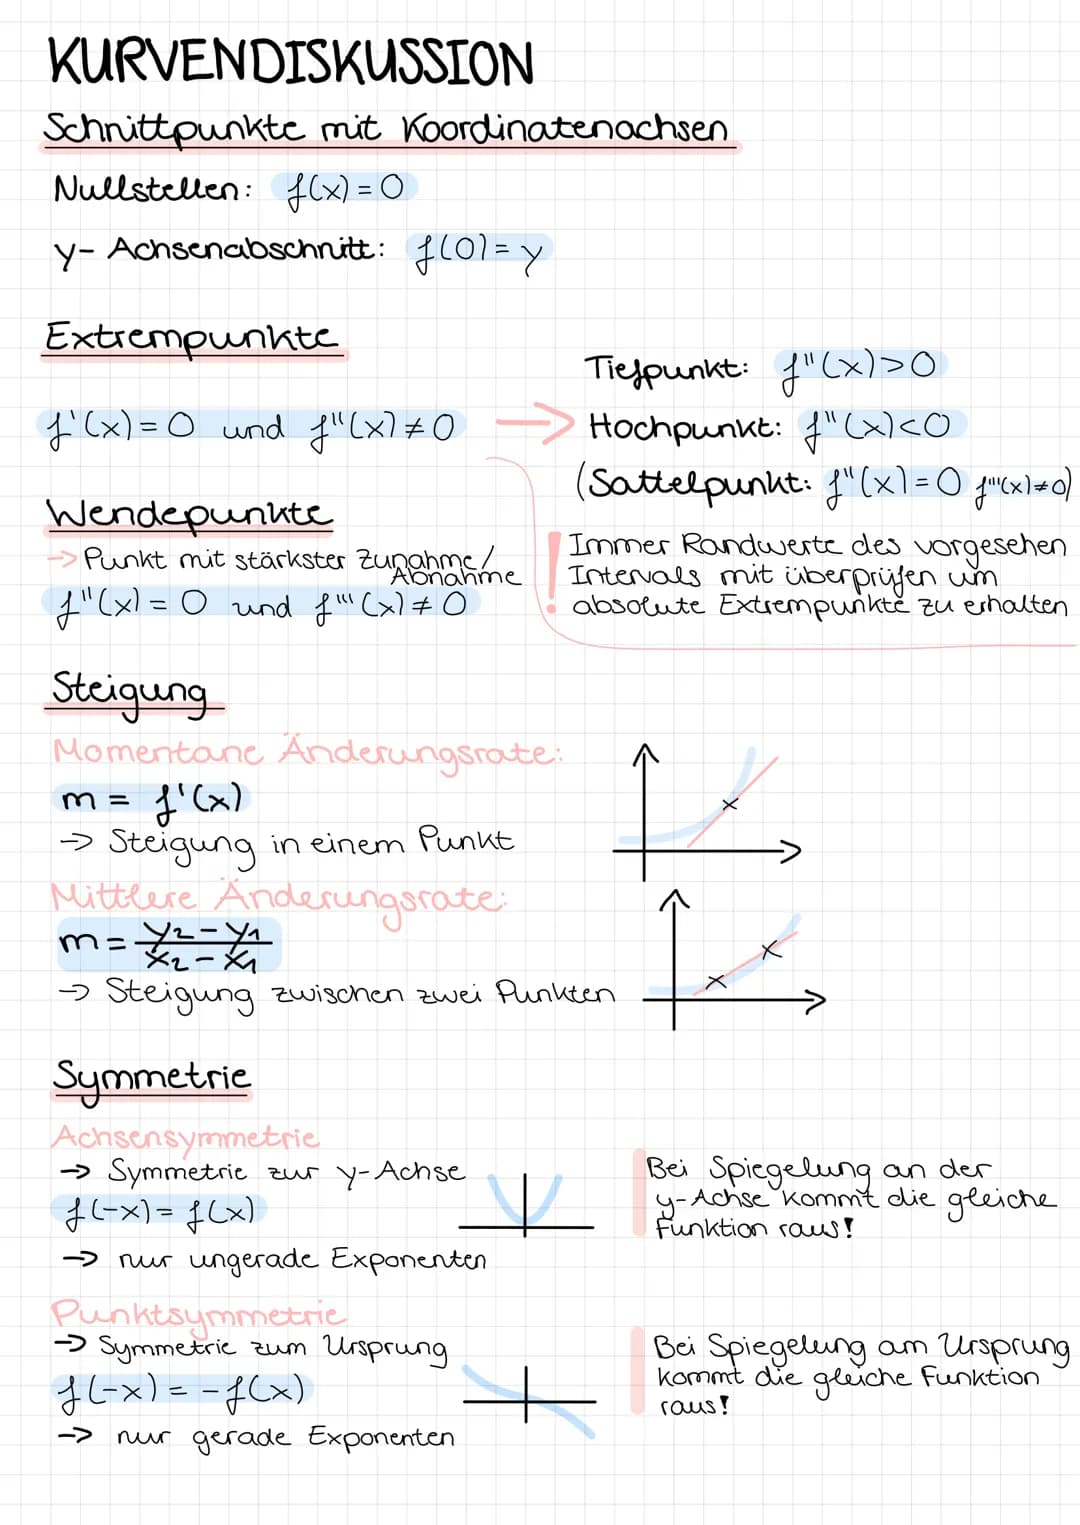 KURVENDISKUSSION
Schnittpunkte mit Koordinatenachsen
Nullstellen: f(x) = 0
y- Achsenabschnitt: f(0) = y
Extrempunkte
f'(x) = 0 und f''(x) ≠ 0
Tiefpunkt: f''(x) > 0
→ Hochpunkt: f''(x) < 0
(Sattelpunkt: f''(x) = 0 f'''(x) ≠ 0)
! Immer Randwerte des vorgesehen
Intervals mit überprüfen um
absolute Extrempunkte zu erhalten
Wendepunkte
→ Punkt mit stärkster Zunahme/
Abnahme
f''(x) = 0 und f'''(x) ≠ 0
Steigung
Momentane Änderungsrate:
m = f'(x)
→ Steigung in einem Punkt
Mittlere Änderungsrate:
m = y₂ - y₁ / x₂ - x₁
→ Steigung zwischen zwei Punkten
Symmetrie
Achsensymmetrie
→ Symmetrie zur y-Achse
f(-x) = f(x)
→ nur ungerade Exponenten
Bei Spiegelung an der
y-Achse kommt die gleiche
Funktion raus!
Punktsymmetrie
→ Symmetrie zum Ursprung
f(-x) = - f(x)
→ nur gerade Exponenten
Bei Spiegelung am Ursprung
kommt die gleiche Funktion
raus!